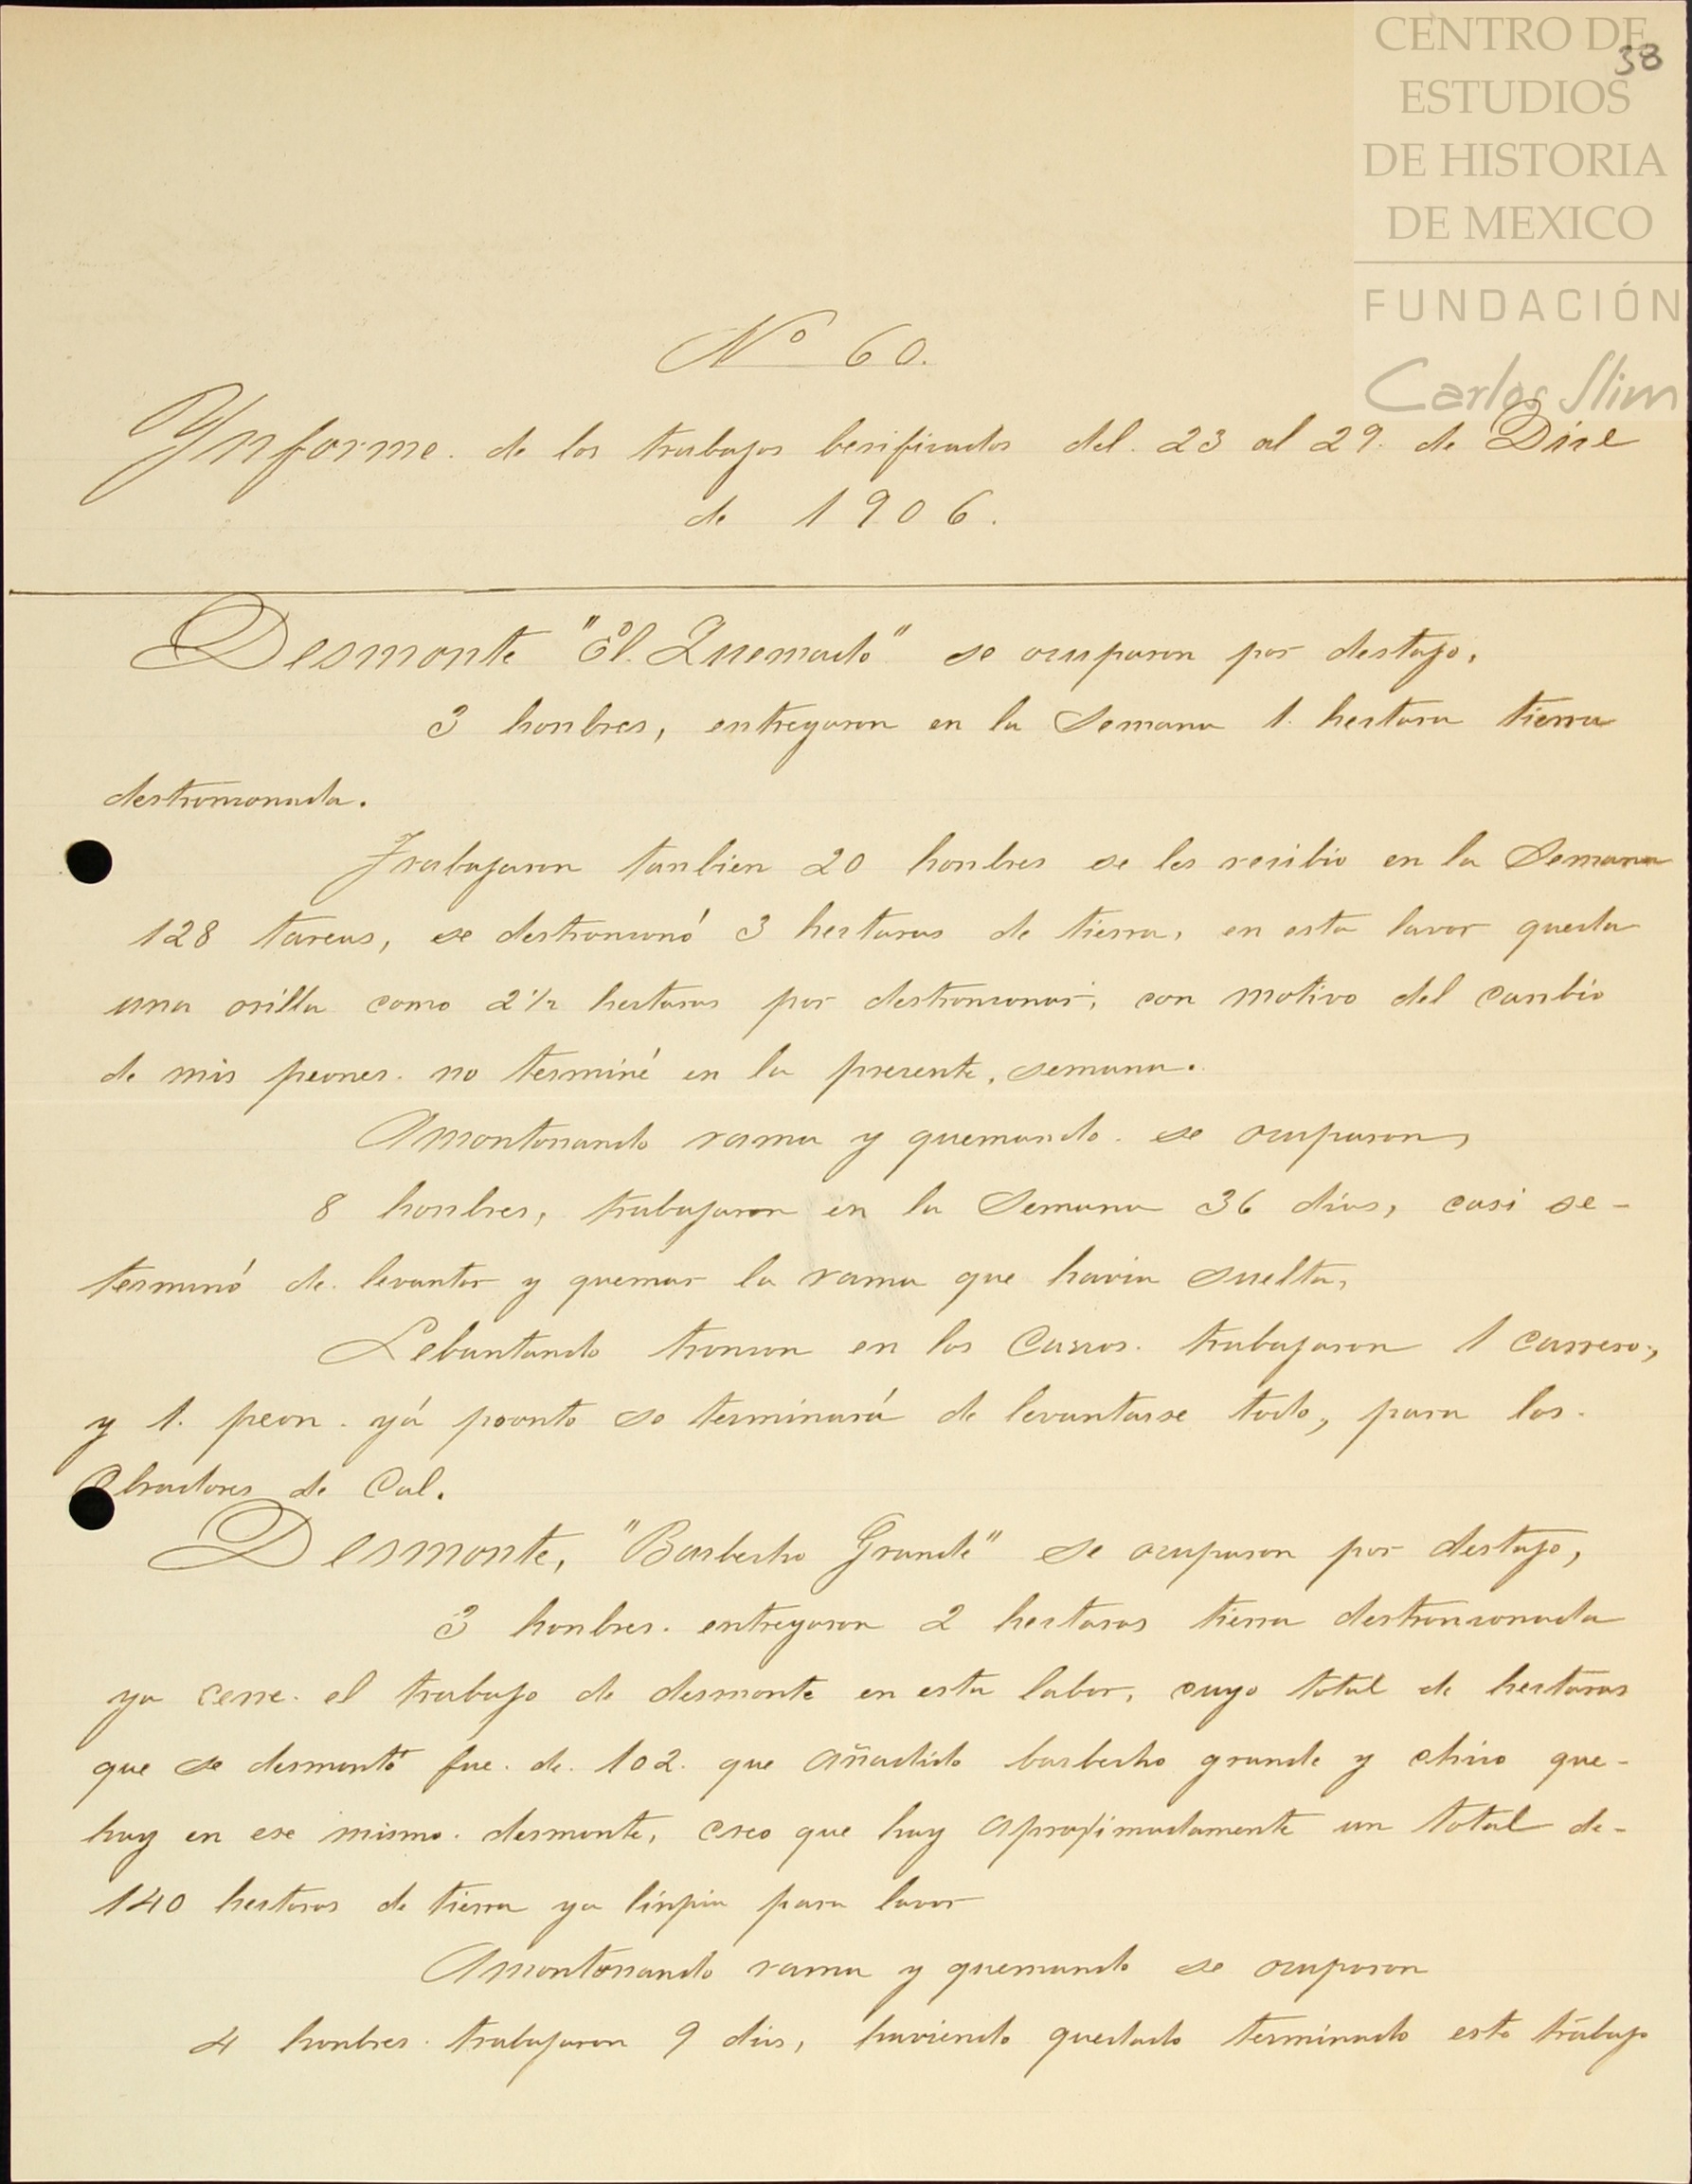 CENTRO DE
ESTUDIOS
DE HISTORIA
DE MEXICO
FUNDACIÓN
Carlos Slim
38
Nº 60.
Ynforme. de los trabajos berificados del. 23 al 29. de Dice
de 1906.
Desmonte "El. Quemado" se ocuparon por destajo,
3 honbres, entregaron en la Semana 1. hectara tierra
destronconada.
Trabajaron tanbien 20 honbres se les recibio en la Semana
128 tareas, se destronconó 3 hectaras de tierra, en esta lavor queda
una orilla como 2 1/2 hectaras por destronconar, con motivo del canbio
de mis peones. no terminé en la presente, semana.
Amontonando rama y quemando. se ocuparon,
8 honbres, trabajaron en la Semana 36 dias, casi se-
terminó de. levantar y quemar la rama que havia suelta,
Lebantando troncon en los Carros. trabajaron 1 carrero,
y 1. peon. yá pronto se terminará de levantarse todo, para los.
Obradores de Cal.
Desmonte, "Barbecho Grande" se ocuparon por destajo,
3 honbres. entregaron 2 hectaras tierra destronconada
ya cerre. el trabajo de desmonte en esta labor, cuyo total de hectaras
que se desmontó fue. de. 102. que añadido barbecho grande y chico que-
hay en ese mismo. desmonte, creo que hay aproximadamente un total de-
140 hectaras de tierra ya linpia para lavor
Amontonando rama y quemando se ocuparon
4 honbres. trabajaron 9 dias, haviendo quedado terminado este trabajo